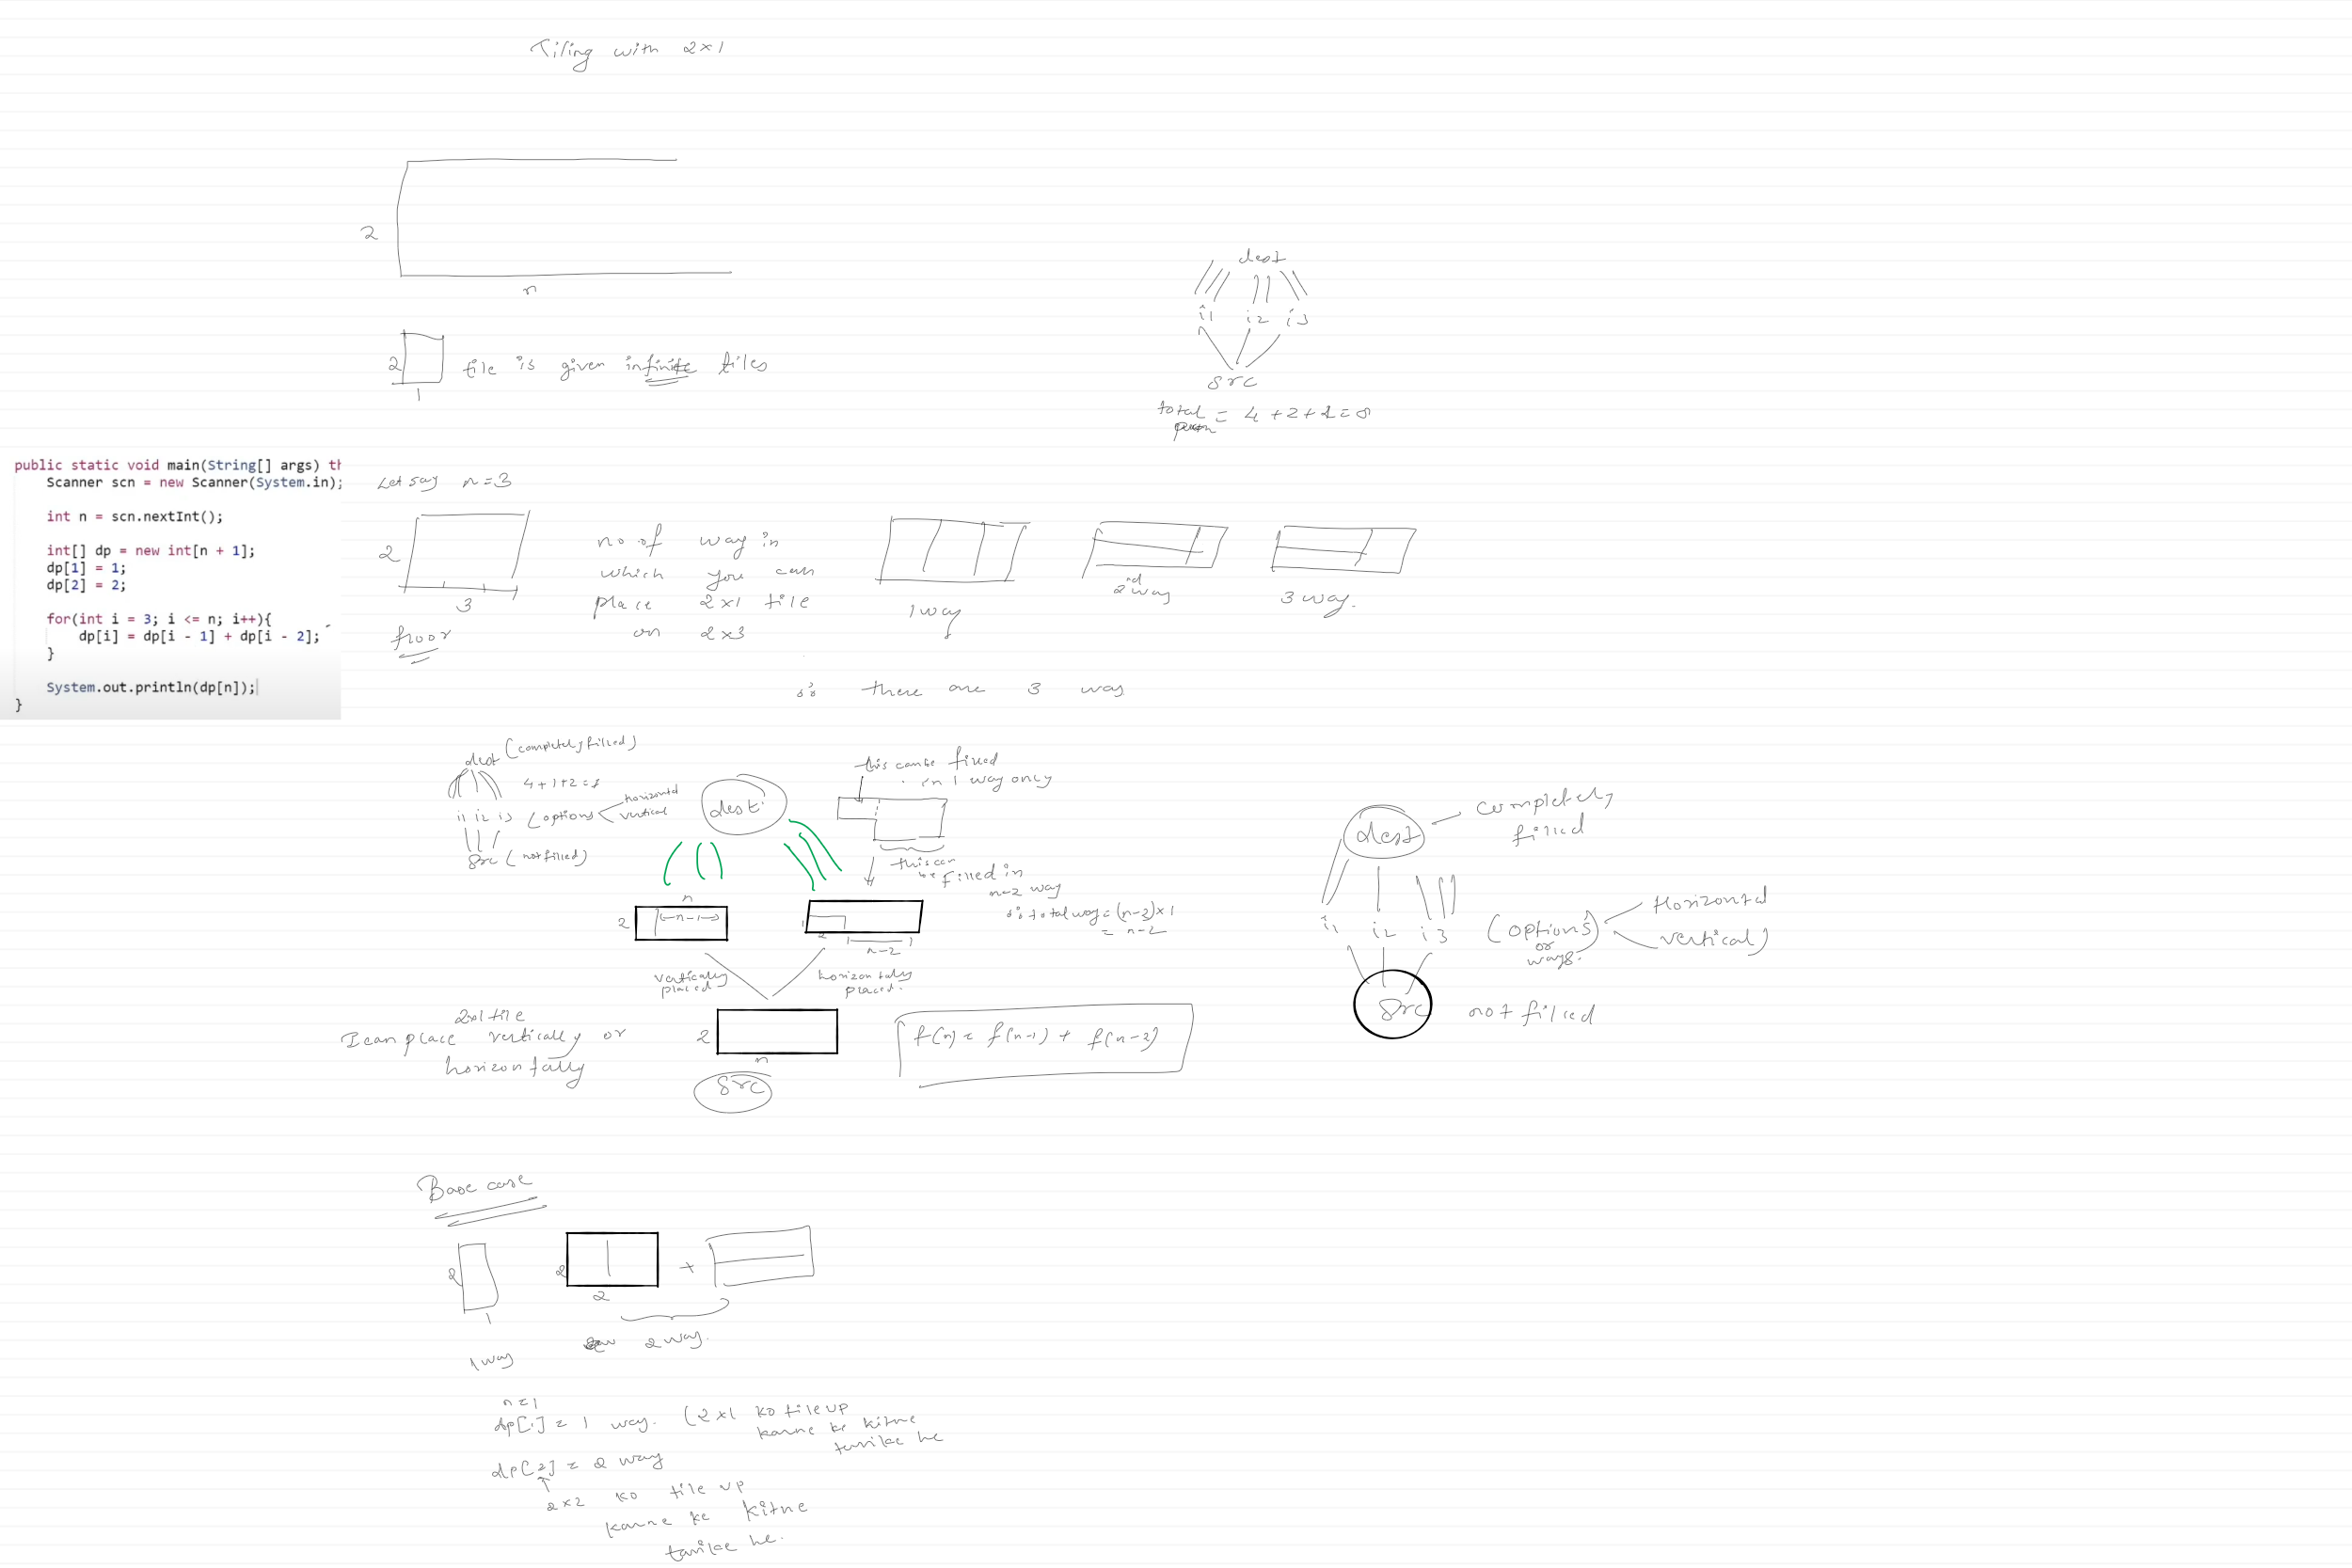 Tiling with 2×1
2
n
2
1
tile is given infinite tiles
dest
i1 i2 i3
src
total = 4+2+2=8
public static void main(String[] args) th
Scanner scn = new Scanner(System.in);
int n = scn.nextInt();
int[] dp = new int[n + 1];
dp[1] = 1;
dp[2] = 2;
for(int i = 3; i <= n; i++){
dp[i] = dp[i - 1] + dp[i - 2];
}
System.out.println(dp[n]);
}
Let say n=3
2
3
floor
no of way in
which you can
place 2×1 tile
on 2×3
1 way
2nd way
3 way.
there are 3 way
dest (completely filled)
4+1+2=
i1 i2 i3 (options
horizontal
vertical
src (not filled)
dest
this can be filled
in 1 way only
this can
be filled in
n-2 way
total way = (n-2)×1
= n-2
2
n
n-1
2
n-2
vertically
placed
horizontally
placed.
2×1 tile
I can place vertically or
horizontally
2
n
src
f(n) = f(n-1) + f(n-2)
dest
completely
filled
i1 i2 i3
(options
or
ways.
Horizontal
vertical)
src
not filled
Base case
2
1
1 way
2
2
+
2 way.
n=1
dp[1] = 1 way. (2×1 ko tile up
karne ke kitne
tarike he
dp[2] = 2 way
2×2 ko tile up
karne ke kitne
tarike he.